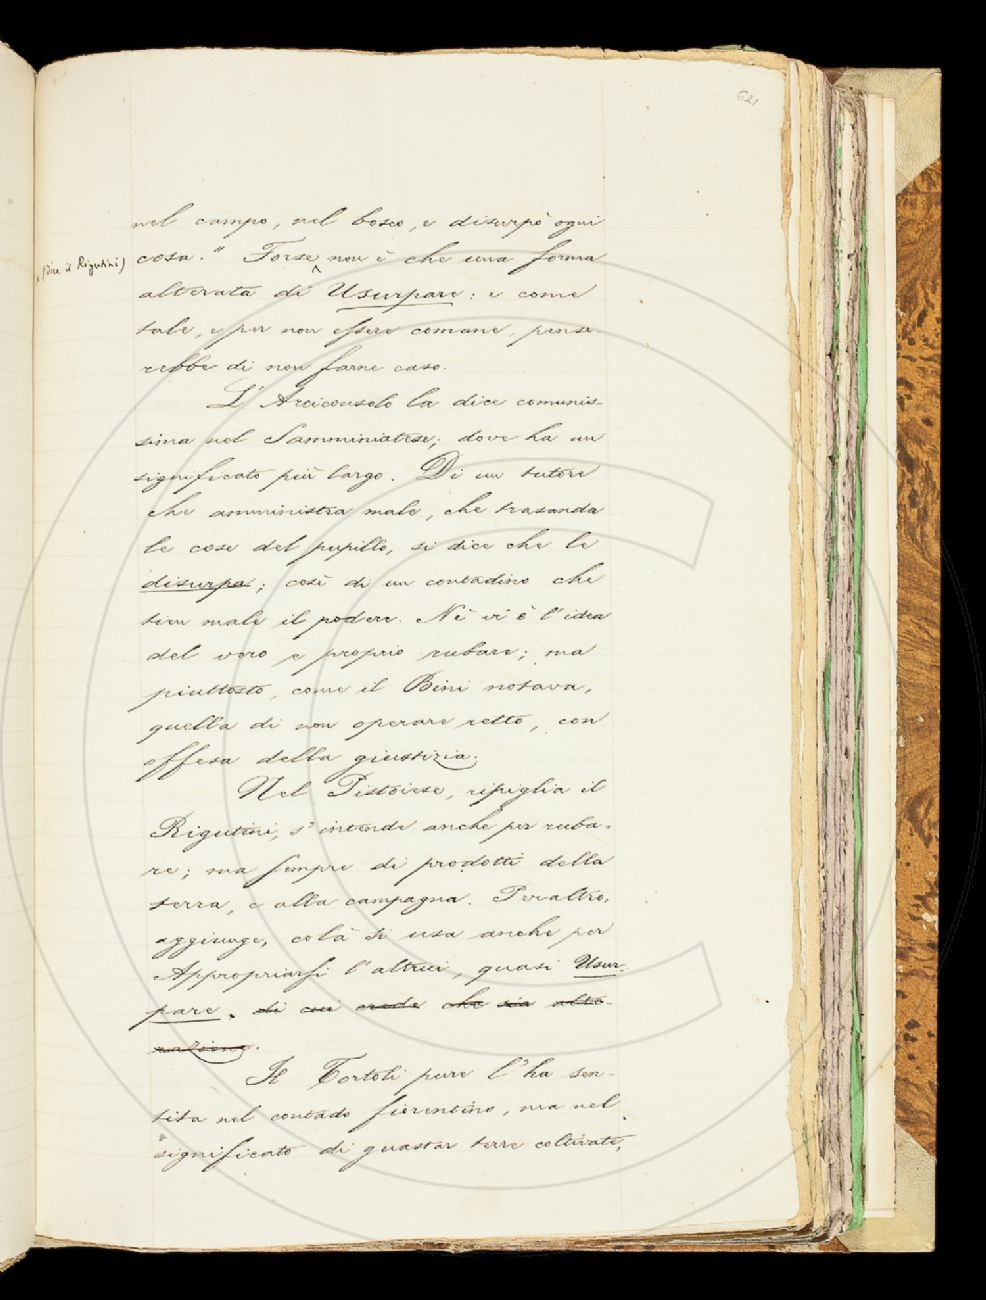 621
nel campo, nel bosco, e disurpò ogni
(dice il Rigutini)
cosa." Forse non è che una forma
alterata di Usurpare: e come
tale, e per non essere comune, pense
rebbe di non farne caso.
L'Arciconsolo la dice comunis
sima nel Samminiatese; dove ha un
significato più largo. Di un tutore
che amministra male, che trasanda
le cose del pupillo, si dice che le
disurpa; così di un contadino che
tien male il podere. Nè vi è l'idea
del vero e proprio rubare; ma
piuttosto, come il Bini notava,
quella di non operare retto, con
offesa della giustizia.
Nel Pistoiese, ripiglia il
Rigutini, s'intende anche per ruba-
re; ma sempre di prodotti della
terra, e alla campagna. Peraltro,
aggiunge, colà si usa anche per
Appropriarsi l'altrui, quasi Usur-
pare. di cui crede che sia alte-
razione.
Il Tortoli pure l'ha sen-
tita nel contado fiorentino, ma nel
significato di guastar terre coltivate,